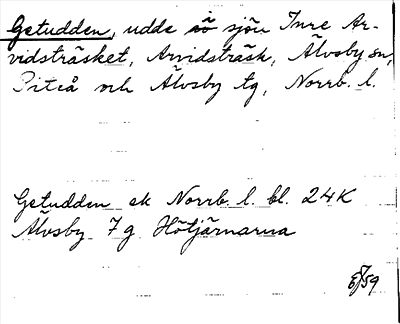 Getudden, udde sö sjön Inre Ar-
vidsträsket, Arvidsträsk, Älvsby sn,
Piteå och Älvsby tg, Norrb. l.
Getudden ek Norrb. l. bl. 24K
Älvsby 7 g Hötjärnarna